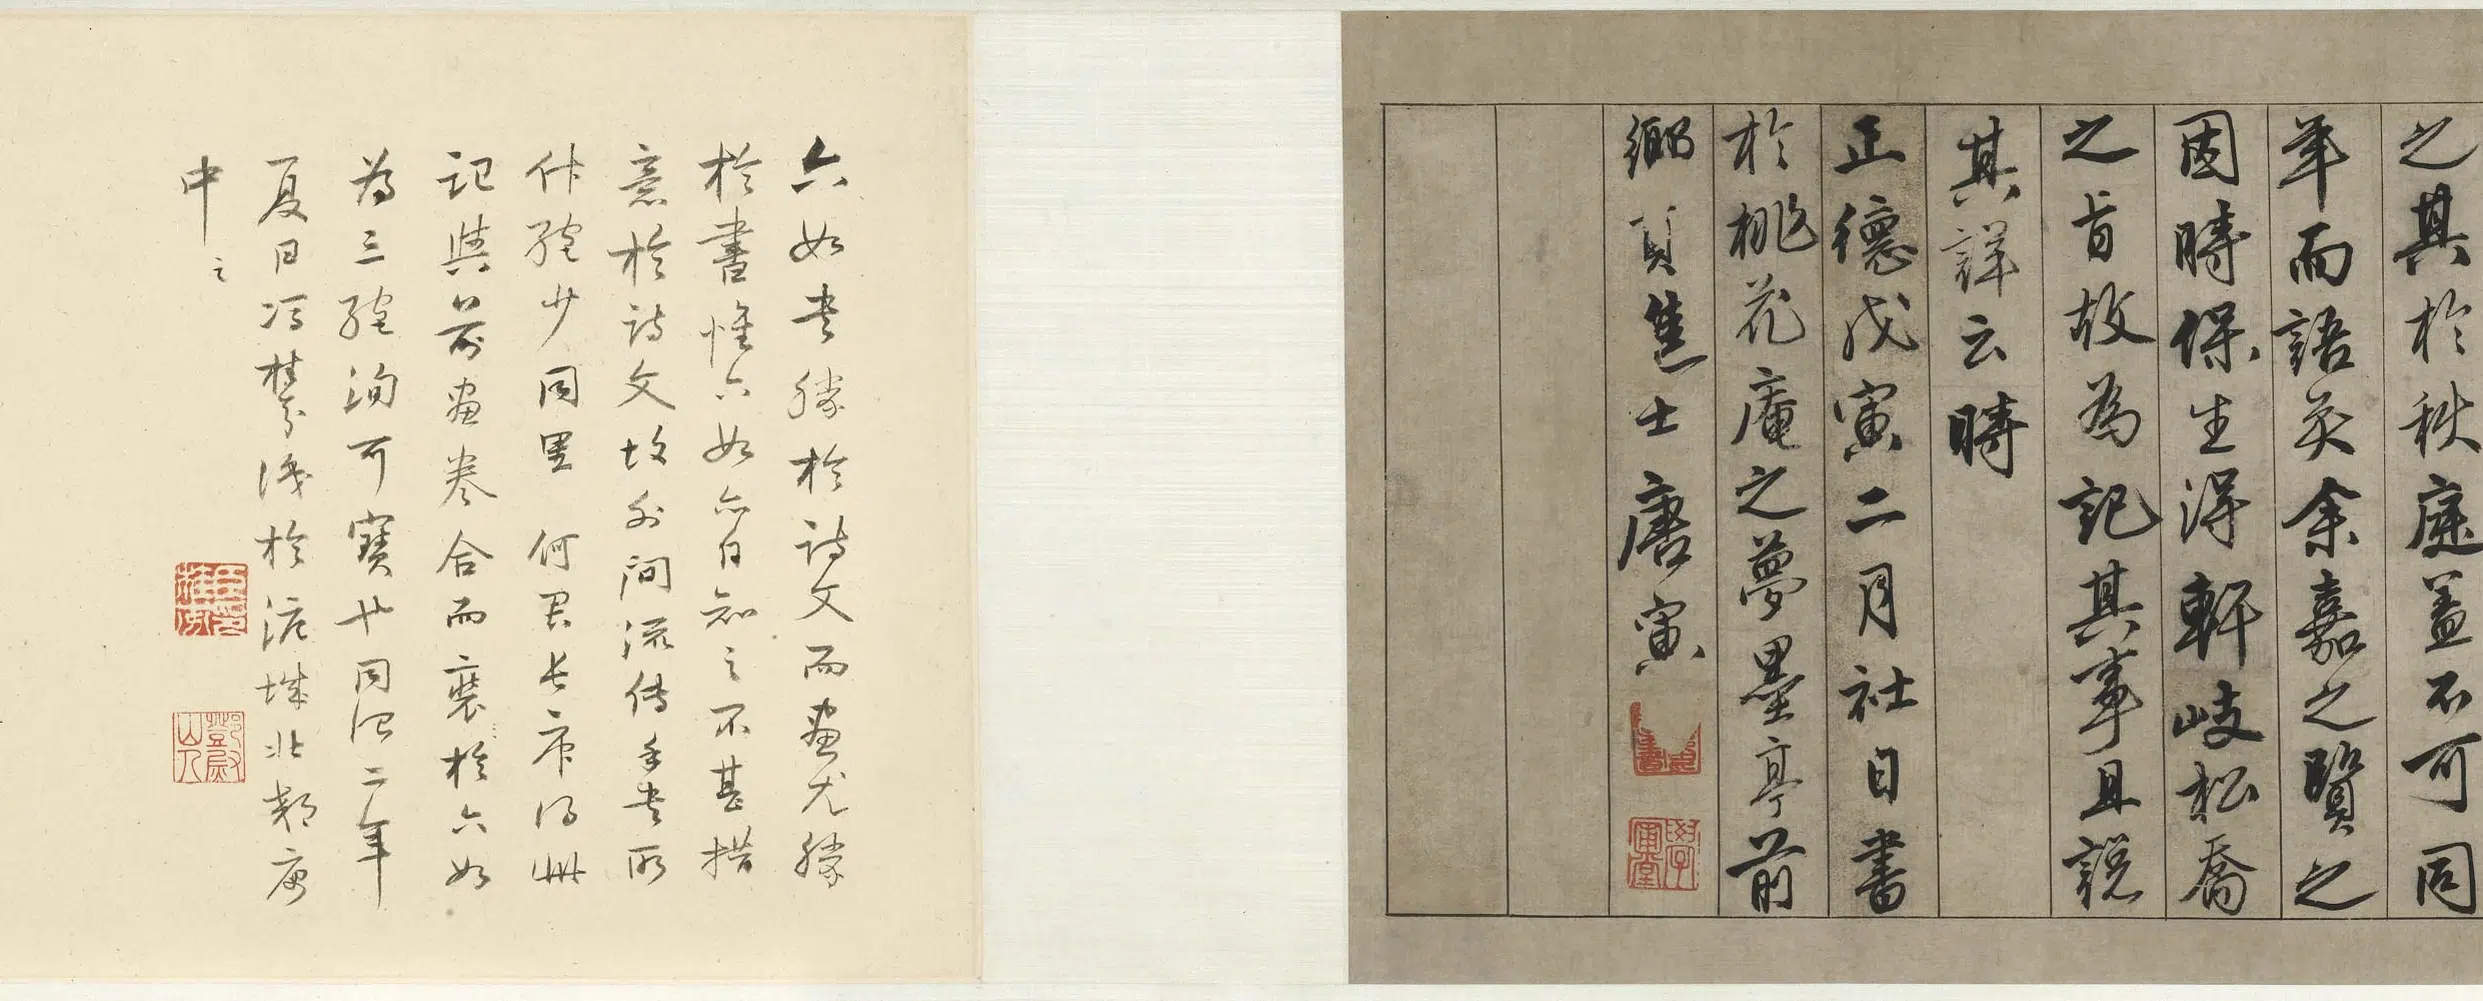 之其於秩庭蓋不可同
年而語矣余嘉之賢之
因時保生得軒岐松喬
之旨故為記其事且說
其詳云時
正德戊寅二月社日書
於桃花庵之夢墨亭前
鄉貢進士唐寅
學圃堂
六如書勝於詩文而畫尤勝
於書惟六如亦自知之不甚措
意於詩文故外間流傳手書所
作絕少同里何君長庚得此
記與前畫卷合而裝於六如
為三絕洵可寶也同治二年
夏日馮桂芬識於滬城北郊廡
中
鄧尉山人